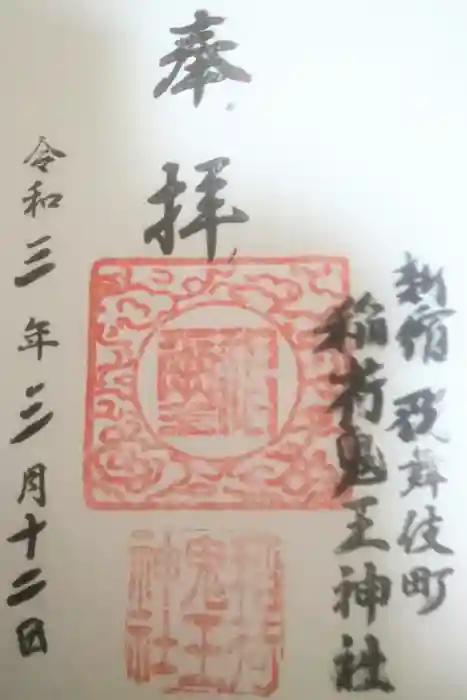 奉拝
新宿歌舞伎町
稲荷鬼王神社
令和三年三月十二日
稲荷
鬼王
神社